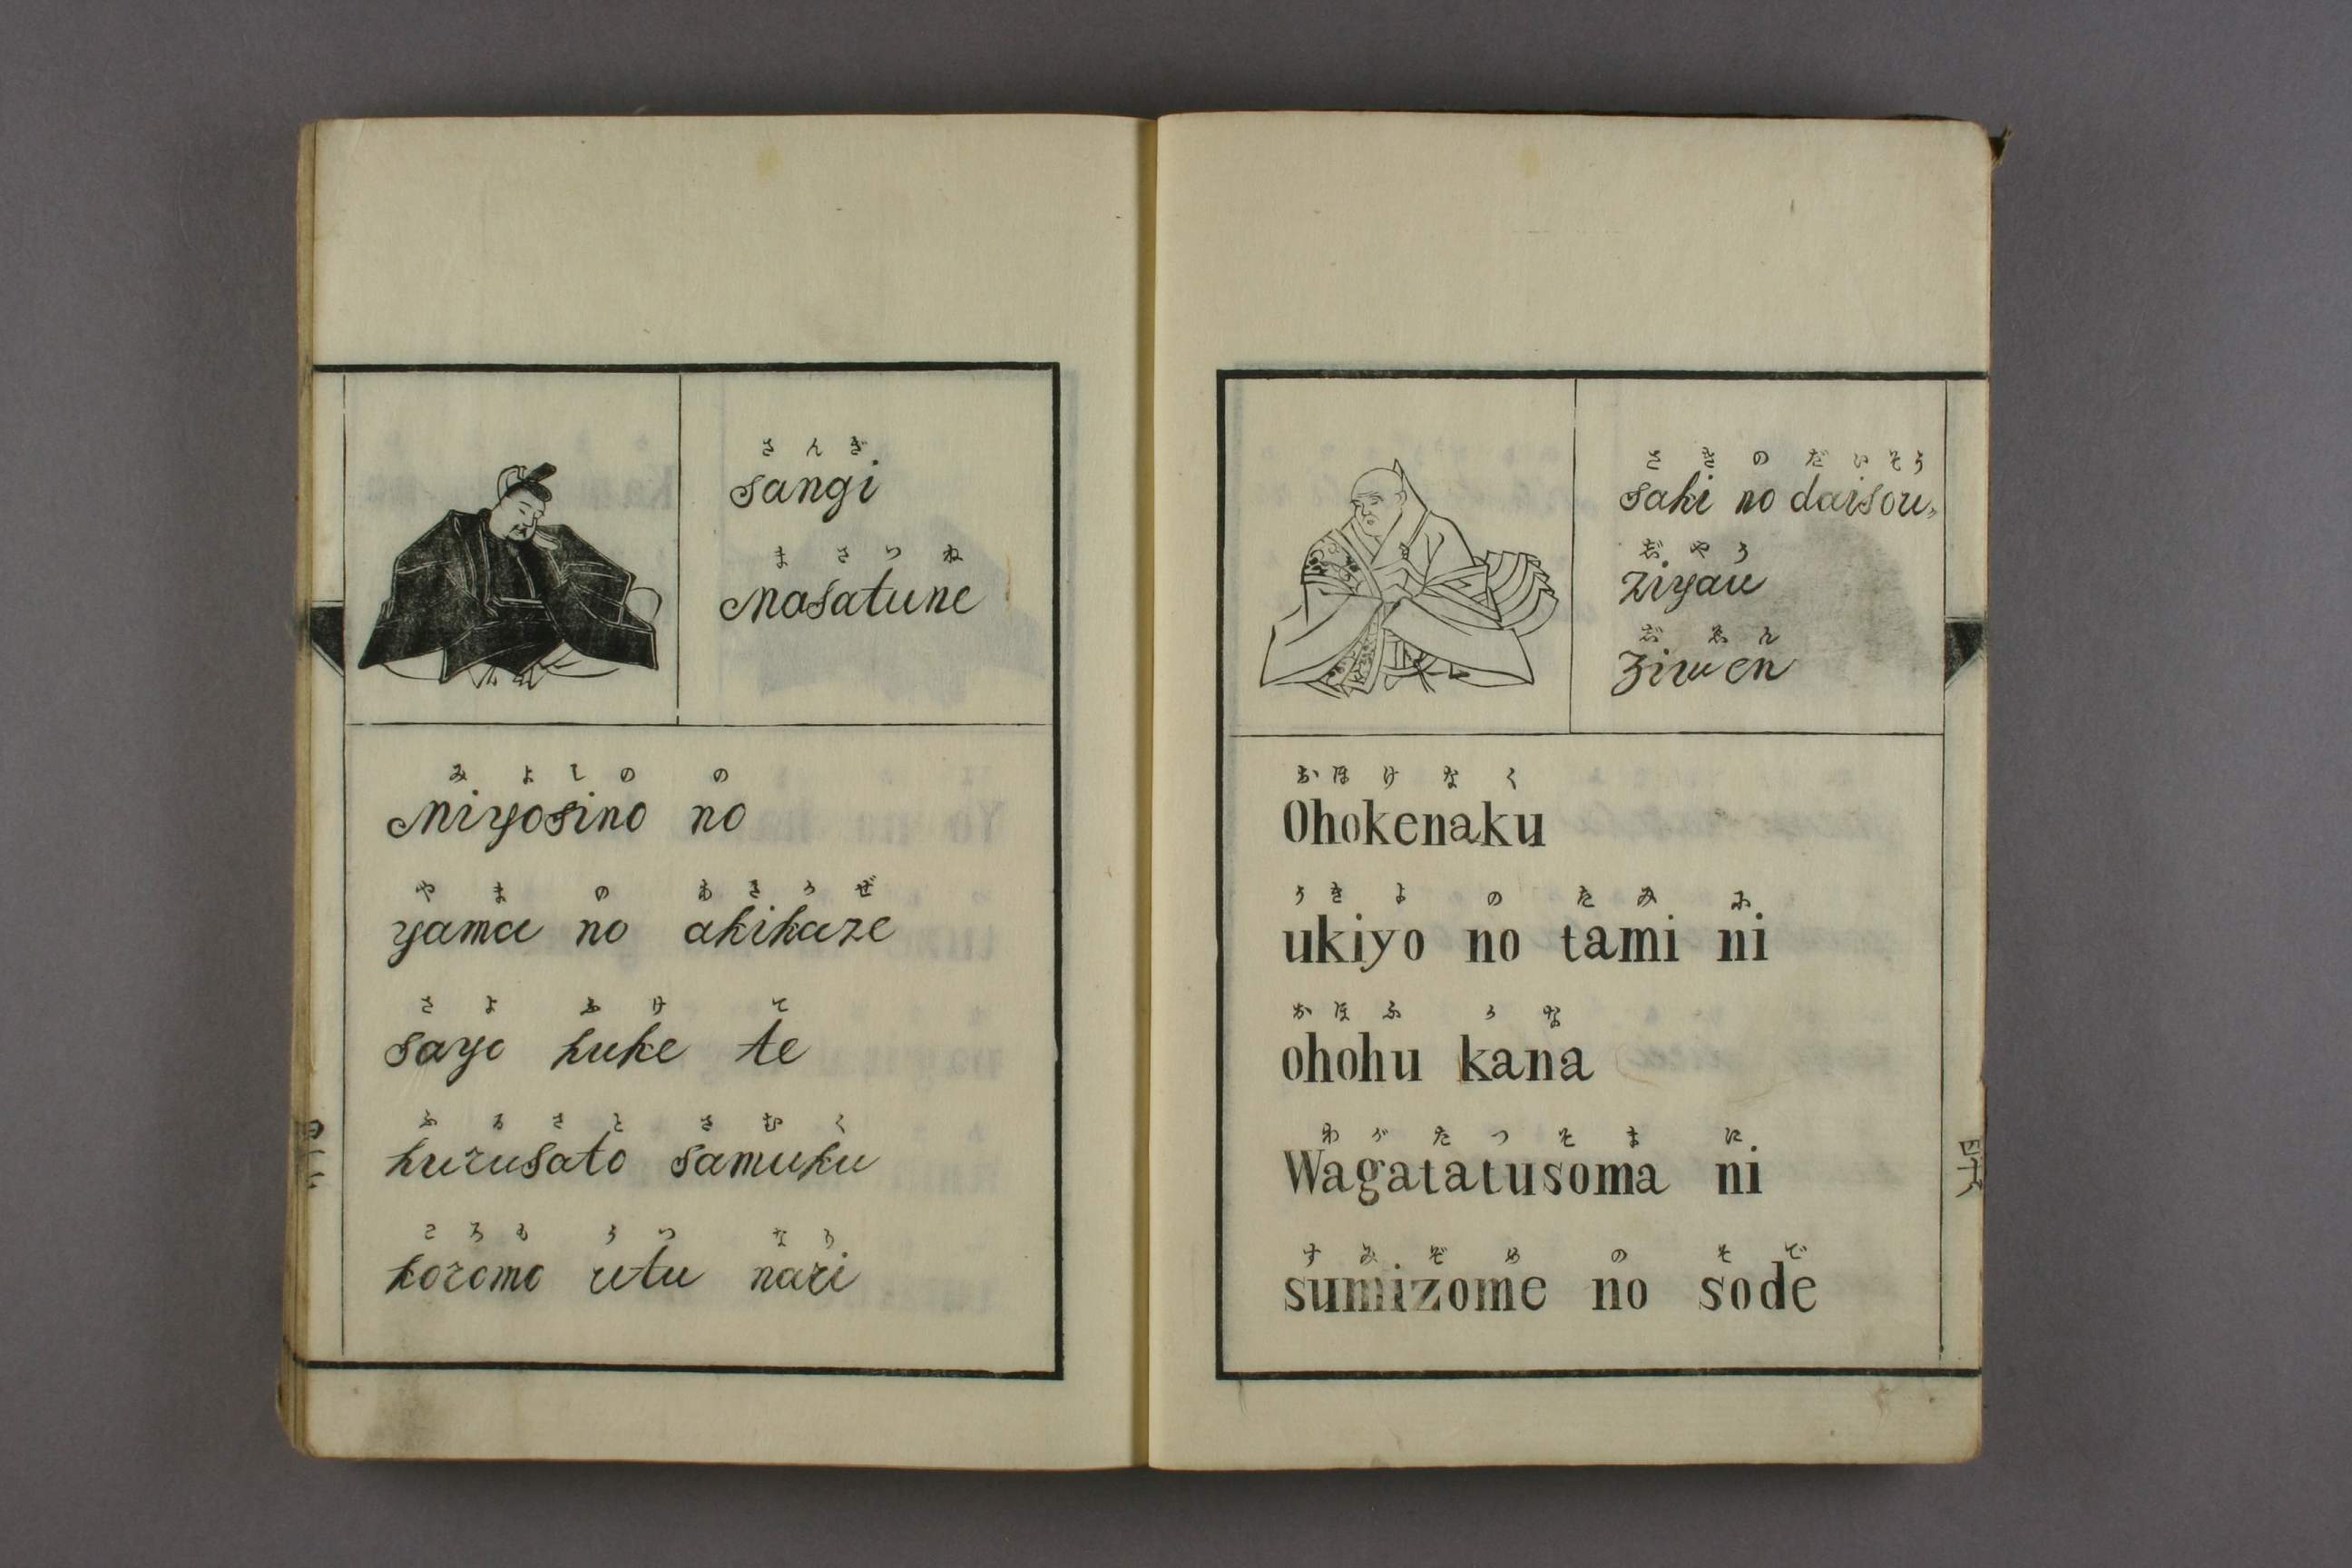 さんぎ
sangi
まさつね
masatune
みよしのの
miyosino no
やまのあきかぜ
yama no akikaze
さよふけて
sayo huke te
ふるさとさむく
hurusato samuku
ころもうつなり
koromo utu nari
さきのだいそう
saki no daisou
ぢやう
ziyau
ぢゑん
ziwen
おほけなく
Ohokenaku
うきよのたみに
ukiyo no tami ni
おほふかな
ohohu kana
わがたつそまに
Wagatatusoma ni
すみぞめのそで
sumizome no sode